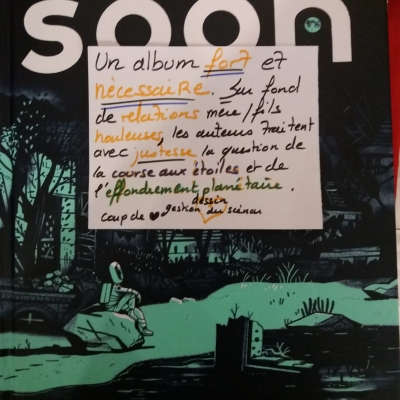 soon
Un album fort et
nécessaire. Sur fond
de relations mère/fils
houleuses, les auteurs traitent
avec justesse la question de
la course aux étoiles et de
l'effondrement planétaire.
dessin
Coup de ♥ gestion du